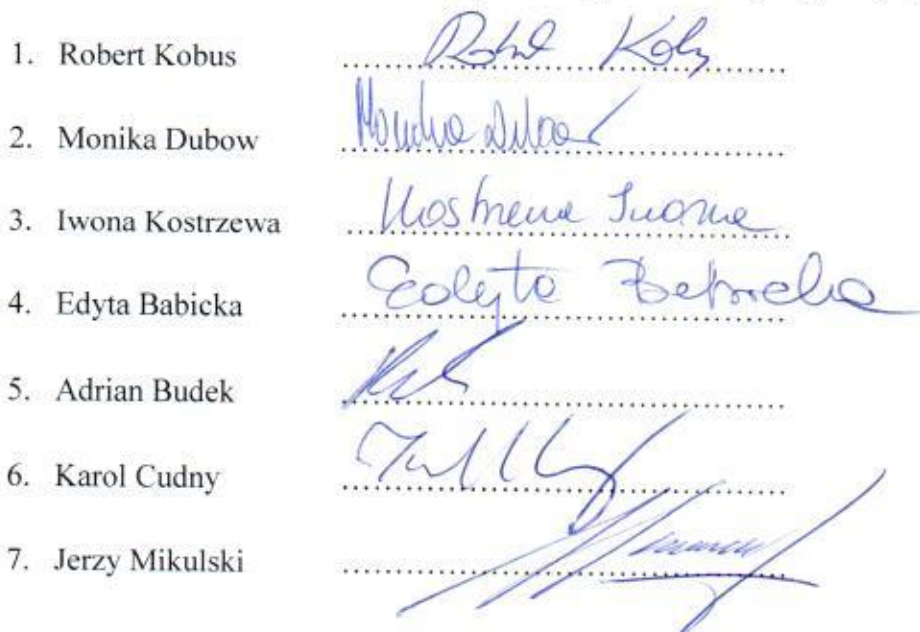 1. Robert Kobus Robert Kobus
2. Monika Dubow Monika Dubow
3. Iwona Kostrzewa Kostrzewa Iwona
4. Edyta Babicka Edyta Babicka
5. Adrian Budek
6. Karol Cudny
7. Jerzy Mikulski